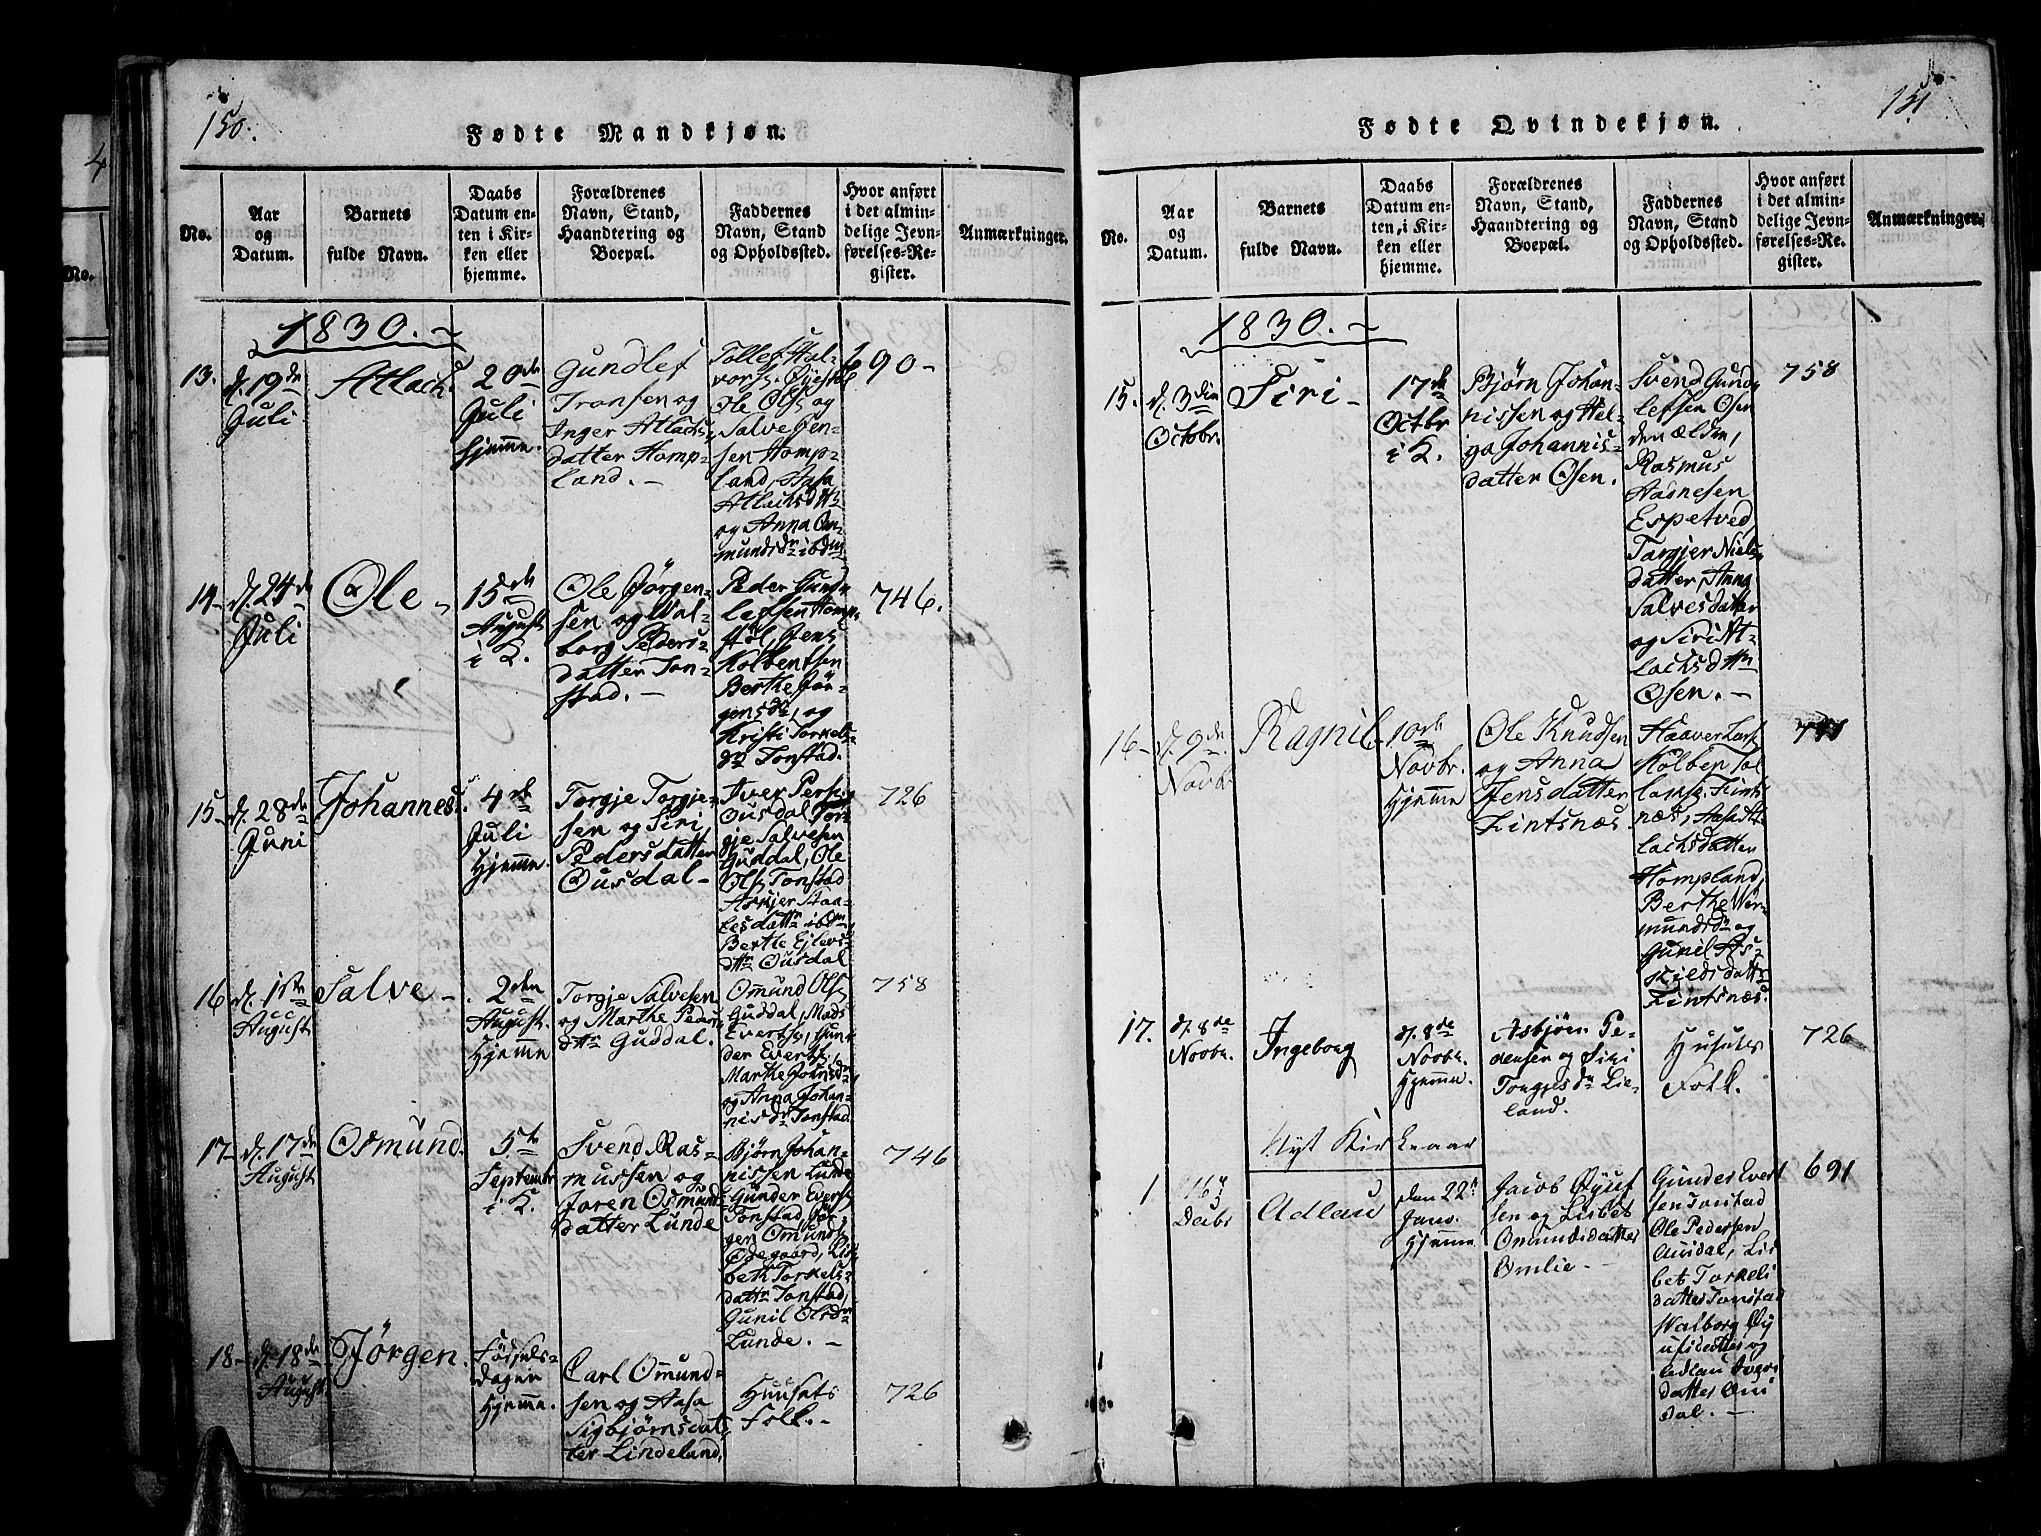 150.
Fødte Mandkjøn.
No.
Aar
og
Datum.
Barnets
fulde Navn.
Daabs
Datum en-
ten i Kir-
ken eller
hjemme.
Forældrenes
Navn, Stand,
Haandtering og
Boepæl.
Faddernes
Navn, Stand
og Opholdssted.
Hvor anført
i det almin-
delige Jevn-
førelses-Re-
gister.
Anmærkninger.
1830.
13.
d. 19de
Juli
Atlach
20de
Juli
hjemme.
Gundlef
Tronsen og
Inger Atlachs
datter Homp-
land. -
Tollef Hal-
vors.
Ole Ols. og
Salve Jen-
sen Homp-
land, Aasa
Atlachsdttr
og Anna Om-
mundsdr ibdm
690-
14-
d. 24de
Juli
Ole-
15de
August
i K.
Ole Jørgen-
sen og Wal-
borg Peders-
datter Ton-
stad. -
Peder Gund-
lefsen Homp-
støl, Jens
Kolbentsen
Berthe Jør-
gensdr, og
Kristi Torkels-
dr Tonstad.
746.
15-
d. 28de
Juni
Johannes.
4de
Juli
Hjemme.
Torgje Torgje-
sen og Siri
Pedersdatter
Ousdal-
Iver Pers.
Ousdal Tor-
gje Salvesen
Guddal, Ole
Ols. Tonstad
Askjer Staa-
lesdattr ibdm
Berthe Ejlevs-
dttr Ousdal
726
16
d. 1ste
August
Salve-
2den
August.
Hjemme
Torgje Salvesen
og Marthe Peders
dttr Guddal.
Omund Ols.
Guddal, Mads
Everts., Gun-
der Everts.,
Marthe Johnsdr
og Anna Johan-
nisdr Tonstad.
758
17-
d. 17de
August
Osmund.
5te
Septembr
i K.
Svend Ras-
mussen og
Joren Osmunds
datter Lunde
Bjørn Johan-
nissen Lunde
Gunder Everts.
Tonstad, Jør-
gen Omunds.
Ødegaard, Lis-
beth Torkels-
dattr Tonstad,
Gunil Olsdr
Lunde. -
746
18-
d. 18de
August.
Jørgen.
Fødsels-
dagen
Hjemme.
Carl Omund-
sen og Aasa
Sigbjørnsdat-
ter Lindeland,
Huusets
Folk.-
726
151
Fødte Qvindekjøn.
No.
Aar
og
Datum.
Barnets
fulde Navn.
Daabs
Datum en-
ten i Kir-
ken eller
hjemme.
Forældrenes
Navn, Stand,
Haandtering og
Boepæl.
Faddernes
Navn, Stand
og Opholdssted.
Hvor anført
i det almin-
delige Jevn-
førelses-Re-
gister.
Anmærkninger.
1830.
15.
d. 3die
Octobr.
Siri-
17de
Octbr
i K.
Bjørn Johan-
nissen og Hel-
ga Johannis-
datter Osen.
Svend Gund-
lefsen Osen
den ældre,
Rasmus
Aasnesen
Espetved,
Targjer Niels-
datter, Anna
Salvesdatter
og Siri At-
lachsdttr
Osen. -
758
16-
d. 9de
Novbr.
Ragnil-
10de
Novbr.
Hjemme
Ole Knudsen
og Anna
Jensdatter
Fintsnæs.
Haaver Lars.
Kolben Tol-
lefs. Fints-
næs, Aasa At-
lachsdatter
Hompland,
Berthe Wer-
mundsdr og
Gunil As-
kieldsdatter
Fintsnæs.
17.
d. 8de
Novbr.
Ingeborg
d. 8de
Novbr.
Hjemme.
Asbjørn Pe-
dersen og Siri
Torgjesdr Lie-
land.
Husets
Folk.
726
Nyt Kirkeaar
1
16
Decbr
Adlau
den 22
Janr.
Hjemme
Jacob Øyuf
sen og Lisbet
Omundsdatter
Omlie. -
Gunder Evert
sen Tonstad
Ole Pedersen
Ausdal, Lis
bet Torkels
datter Tonstad
Walborg Øy
ufsdatter og
Adlau Ivers
datter Aus
dal. -
691